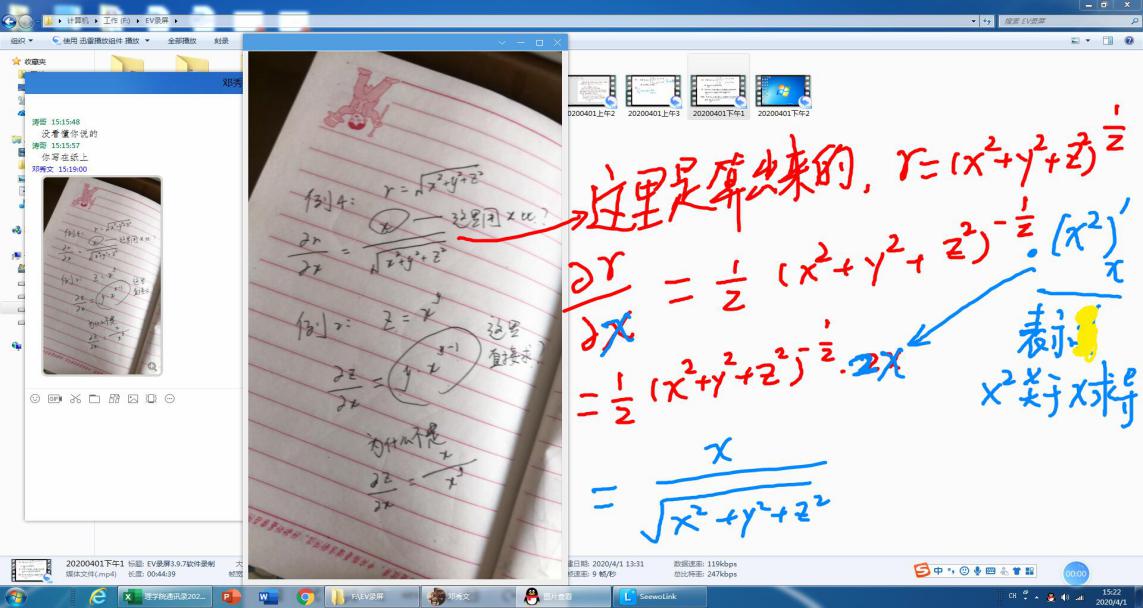 计算机 ▸ 工作 (F:) ▸ EV录屏 ▸
搜索 EV录屏
组织 ▼ 使用 迅雷播放组件 播放 ▼ 全部播放 刻录
收藏夹
邓秀
涛哥 15:15:48
没看懂你说的
涛哥 15:15:57
你写在纸上
邓秀文 15:19:00
例4: r=√x²+y²+z²
x — 这里用x么?
∂r/∂x = x/√x²+y²+z²
例2: z=x^y
∂z/∂x = yx^(y-1) 这里
直接求?
为什么不是
∂z/∂x = x/x^y
20200401上午2
20200401上午3
20200401下午1
20200401下午2
这里是算出来的, r=(x²+y²+z²)^(1/2)
∂r/∂x = 1/2 (x²+y²+z²)^(-1/2) · (x²)'x
表示
x²关于x求导
= 1/2 (x²+y²+z²)^(-1/2) · 2x
= x/√x²+y²+z²
20200401下午1 标题: EV录屏3.9.7软件录制
媒体文件(.mp4) 长度: 00:44:39
建日期: 2020/4/1 13:31 数据速率: 119kbps
帧速率: 9 帧/秒 总比特率: 247kbps
中
00:00
理学院通讯录202...
F:\EV录屏
邓秀文
图片查看
SeewoLink
CH
15:22
2020/4/1